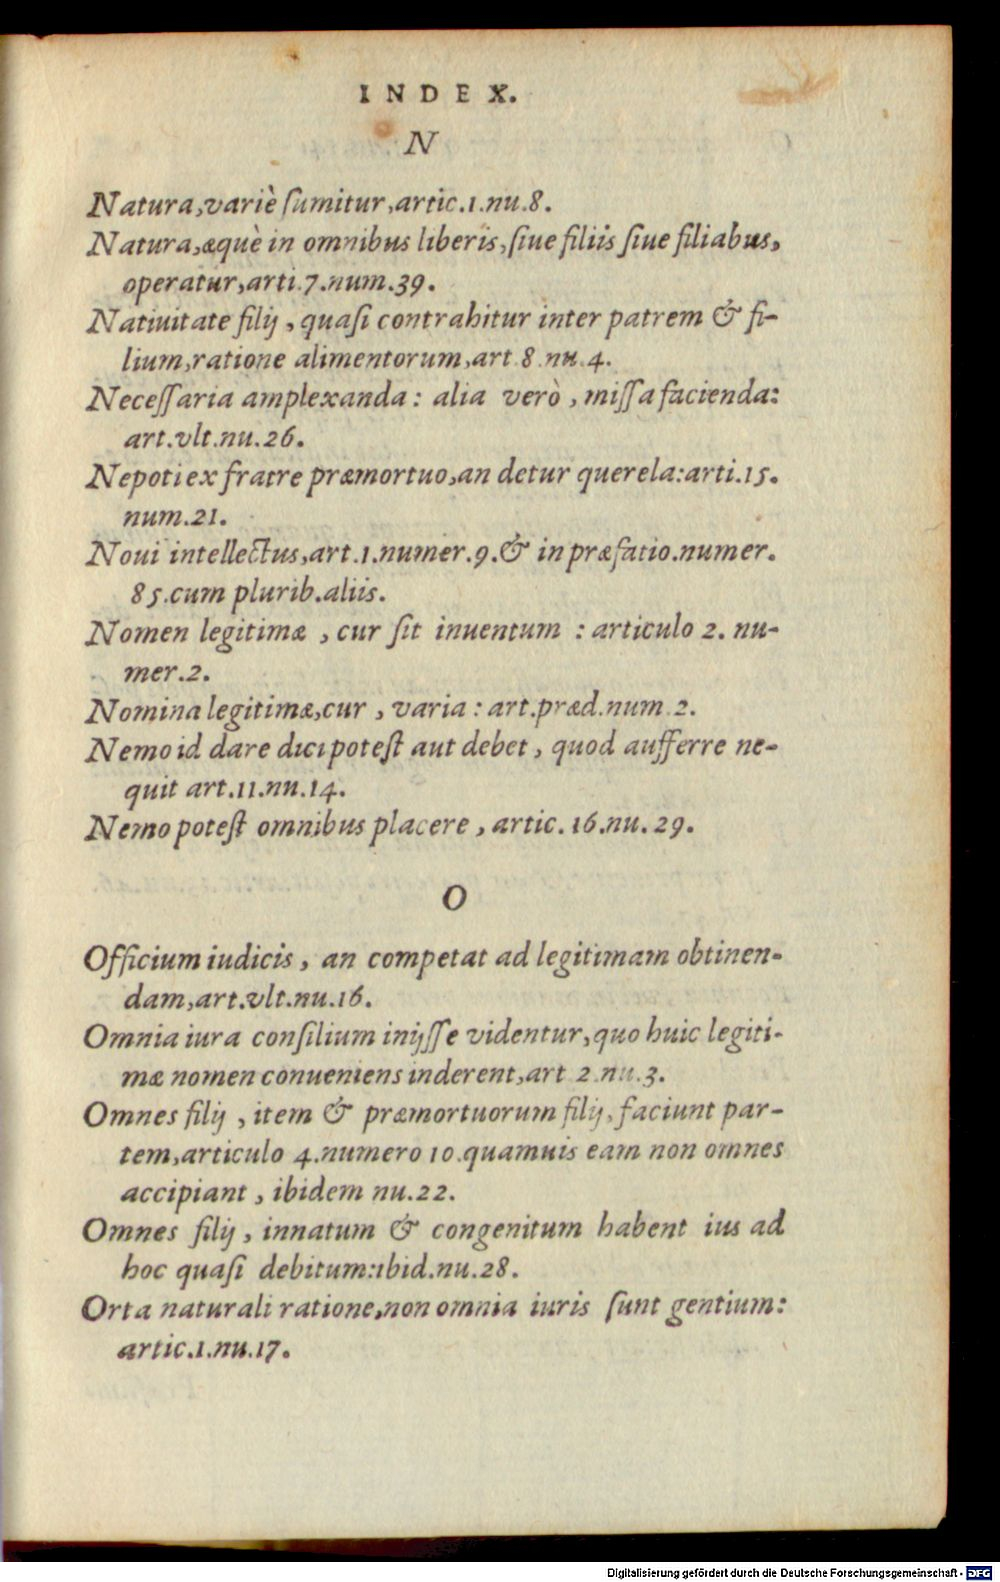 INDEX.
N
Natura, variè ſumitur, artic.1.nu.8.
Natura, æquè in omnibus liberis, ſiue filiis ſiue filiabus,
operatur, arti.7.num.39.
Natiuitate filij, quaſi contrahitur inter patrem & fi-
lium, ratione alimentorum, art.8.nu.4.
Neceſſaria amplexanda: alia verò, miſſa facienda:
art.vlt.nu.26.
Nepoti ex fratre præmortuo, an detur querela: arti.15.
num.21.
Noui intellectus, art.1.numer.9. & in præfatio.numer.
85.cum plurib.aliis.
Nomen legitimæ, cur ſit inuentum: articulo 2. nu-
mer.2.
Nomina legitimæ, cur, varia: art.præd.num.2.
Nemo id dare dici poteſt aut debet, quod aufferre ne-
quit art.11.nu.14.
Nemo poteſt omnibus placere, artic.16.nu.29.
O
Officium iudicis, an competat ad legitimam obtinen-
dam, art.vlt.nu.16.
Omnia iura conſilium inijſſe videntur, quo huic legiti-
mæ nomen conueniens inderent, art 2.nu.3.
Omnes filij, item & præmortuorum filij, faciunt par-
tem, articulo 4.numero 10.quamuis eam non omnes
accipiant, ibidem nu.22.
Omnes filij, innatum & congenitum habent ius ad
hoc quaſi debitum: ibid.nu.28.
Orta naturali ratione, non omnia iuris ſunt gentium:
artic.1.nu.17.
Digitalisierung gefördert durch die Deutsche Forschungsgemeinschaft - DFG